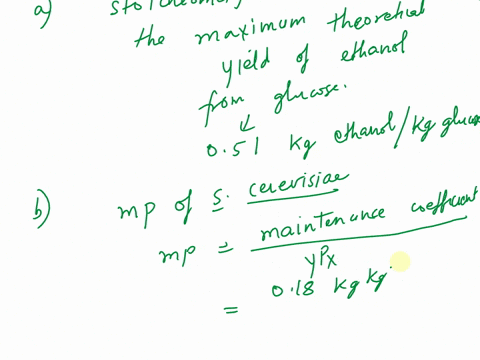 a) stoichiometry
the maximum theoretical
yield of ethanol
from glucose.
0.51 kg ethanol/kg glucose
b) mp of S. cerevisiae
mp = maintenance coefficient
yPx
= 0.18 kg kg